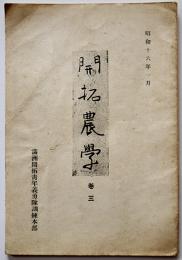 昭和十六年一月
開拓農學
卷三
滿洲開拓靑年義勇隊訓練本部